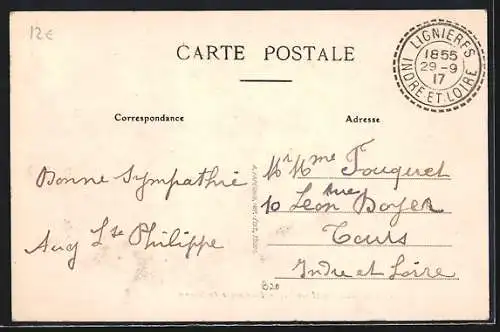 12€
CARTE POSTALE
LIGNIERES
1855
29-9
17
INDRE ET LOIRE
Correspondance
Adresse
Bonne Sympathie
Aug Lse Philippe
Mr Mme Fouquet
10 rue Léon Boyer
Tours
Indre et Loire
B20